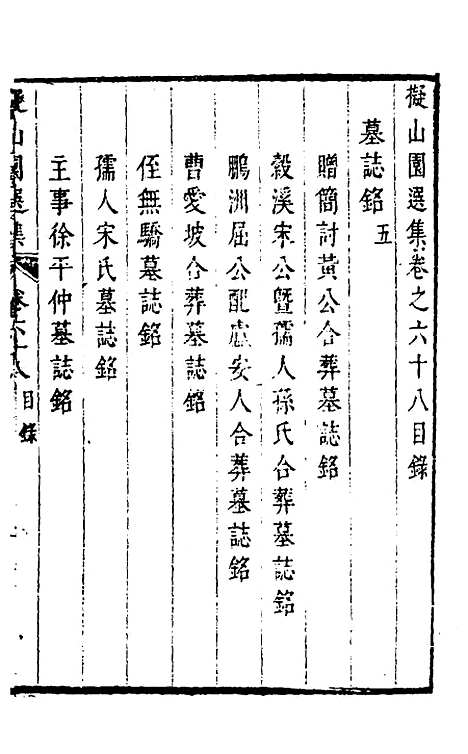 擬山園選集卷之六十八目錄
墓誌銘五
贈簡討黃公合葬墓誌銘
穀溪宋公暨孺人孫氏合葬墓誌銘
鵬洲屈公配盧安人合葬墓誌銘
曹愛坡合葬墓誌銘
侄無驕墓誌銘
孺人宋氏墓誌銘
主事徐平仲墓誌銘
擬山園選集 卷六十八目錄